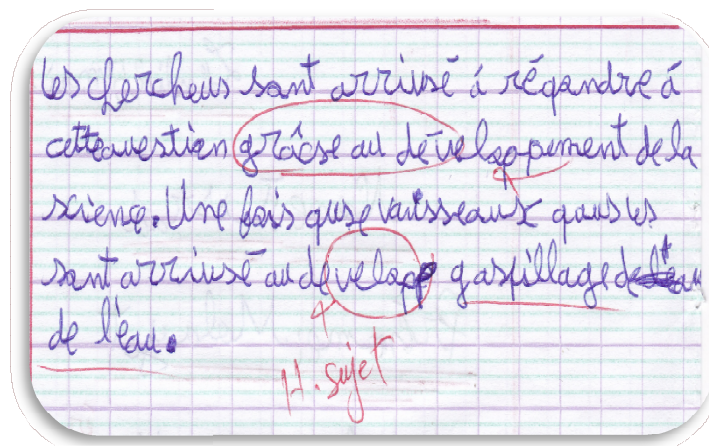 les chercheus sant arrivsé á régandre á
cette question grâcse au dévelop-pement de la
scienç. Une fois quse vaisseaux qaus les
sant arrivsé au dévelapp gaspillage de
de l'éau.
H. sujet